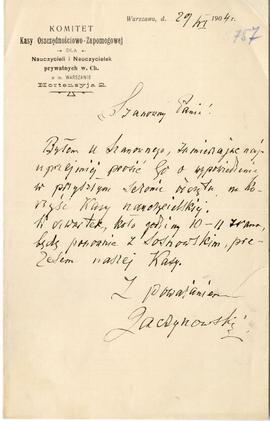 KOMITET
Kasy Oszczędnościowo-Zapomogowej
DLA
Nauczycieli i Nauczycielek
prywatnych w. Ch.
w m. WARSZAWIE
Hortensyja 2.
Warszawa, d. 29/XI 1904 r.
757
Szanowny Panie!
Byłem u Szanownego, zamierzając naj-
uprzejmiej prosić Go o wypowiedzenie
w przyszłym sezonie odczytu na ko-
rzyść Kasy nauczycielskiej.
W czwartek, koło godziny 10-11 zrana,
będę ponownie z Sosnowskim, pre-
zesem naszej Kasy.
Z poważaniem